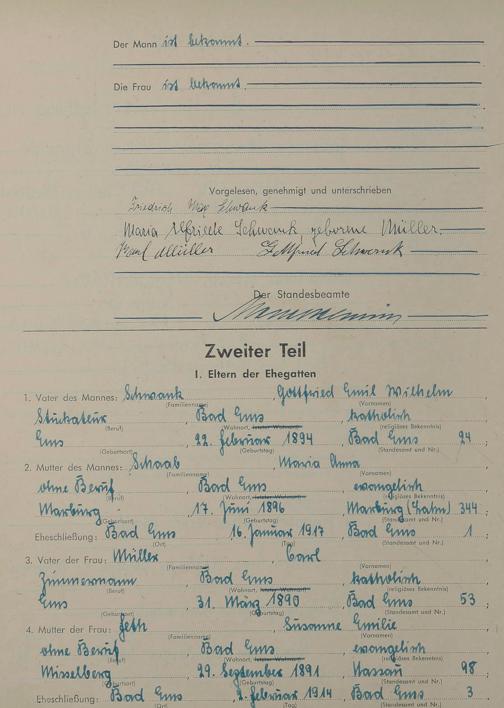 Der Mann ist bekannt.
Die Frau ist bekannt.
Vorgelesen, genehmigt und unterschrieben
Friedrich Max Schwank
Maria Elfriede Schwank geborene Müller.
Karl Müller Gottfried Schwank
Der Standesbeamte
Zweiter Teil
I. Eltern der Ehegatten
1. Vater des Mannes: Schwank, Gottfried Emil Wilhelm
(Familienname) (Vornamen)
Stuckateur, Bad Ems, katholisch
(Beruf) (Wohnort, letzter Wohnort) (religiöses Bekenntnis)
Ems, 22. Februar 1894, Bad Ems 24;
(Geburtsort) (Geburtstag) (Standesamt und Nr.)
2. Mutter des Mannes: Schaab, Maria Anna
(Familienname) (Vornamen)
ohne Beruf, Bad Ems, evangelisch
(Beruf) (Wohnort, letzter Wohnort) (religiöses Bekenntnis)
Marburg, 17. Juni 1896, Marburg (Lahn) 344;
(Geburtsort) (Geburtstag) (Standesamt und Nr.)
Eheschließung: Bad Ems, 16. Januar 1917, Bad Ems 1;
(Ort) (Tag) (Standesamt und Nr.)
3. Vater der Frau: Müller, Carl
(Familienname) (Vornamen)
Zimmermann, Bad Ems, katholisch
(Beruf) (Wohnort, letzter Wohnort) (religiöses Bekenntnis)
Ems, 31. März 1890, Bad Ems 53;
(Geburtsort) (Geburtstag) (Standesamt und Nr.)
4. Mutter der Frau: Jeth, Susanne Emilie
(Familienname) (Vornamen)
ohne Beruf, Bad Ems, evangelisch
(Beruf) (Wohnort, letzter Wohnort) (religiöses Bekenntnis)
Misselberg, 29. September 1891, Nassau 98;
(Geburtsort) (Geburtstag) (Standesamt und Nr.)
Eheschließung: Bad Ems, Februar 1914, Bad Ems 3
(Ort) (Tag) (Standesamt und Nr.)